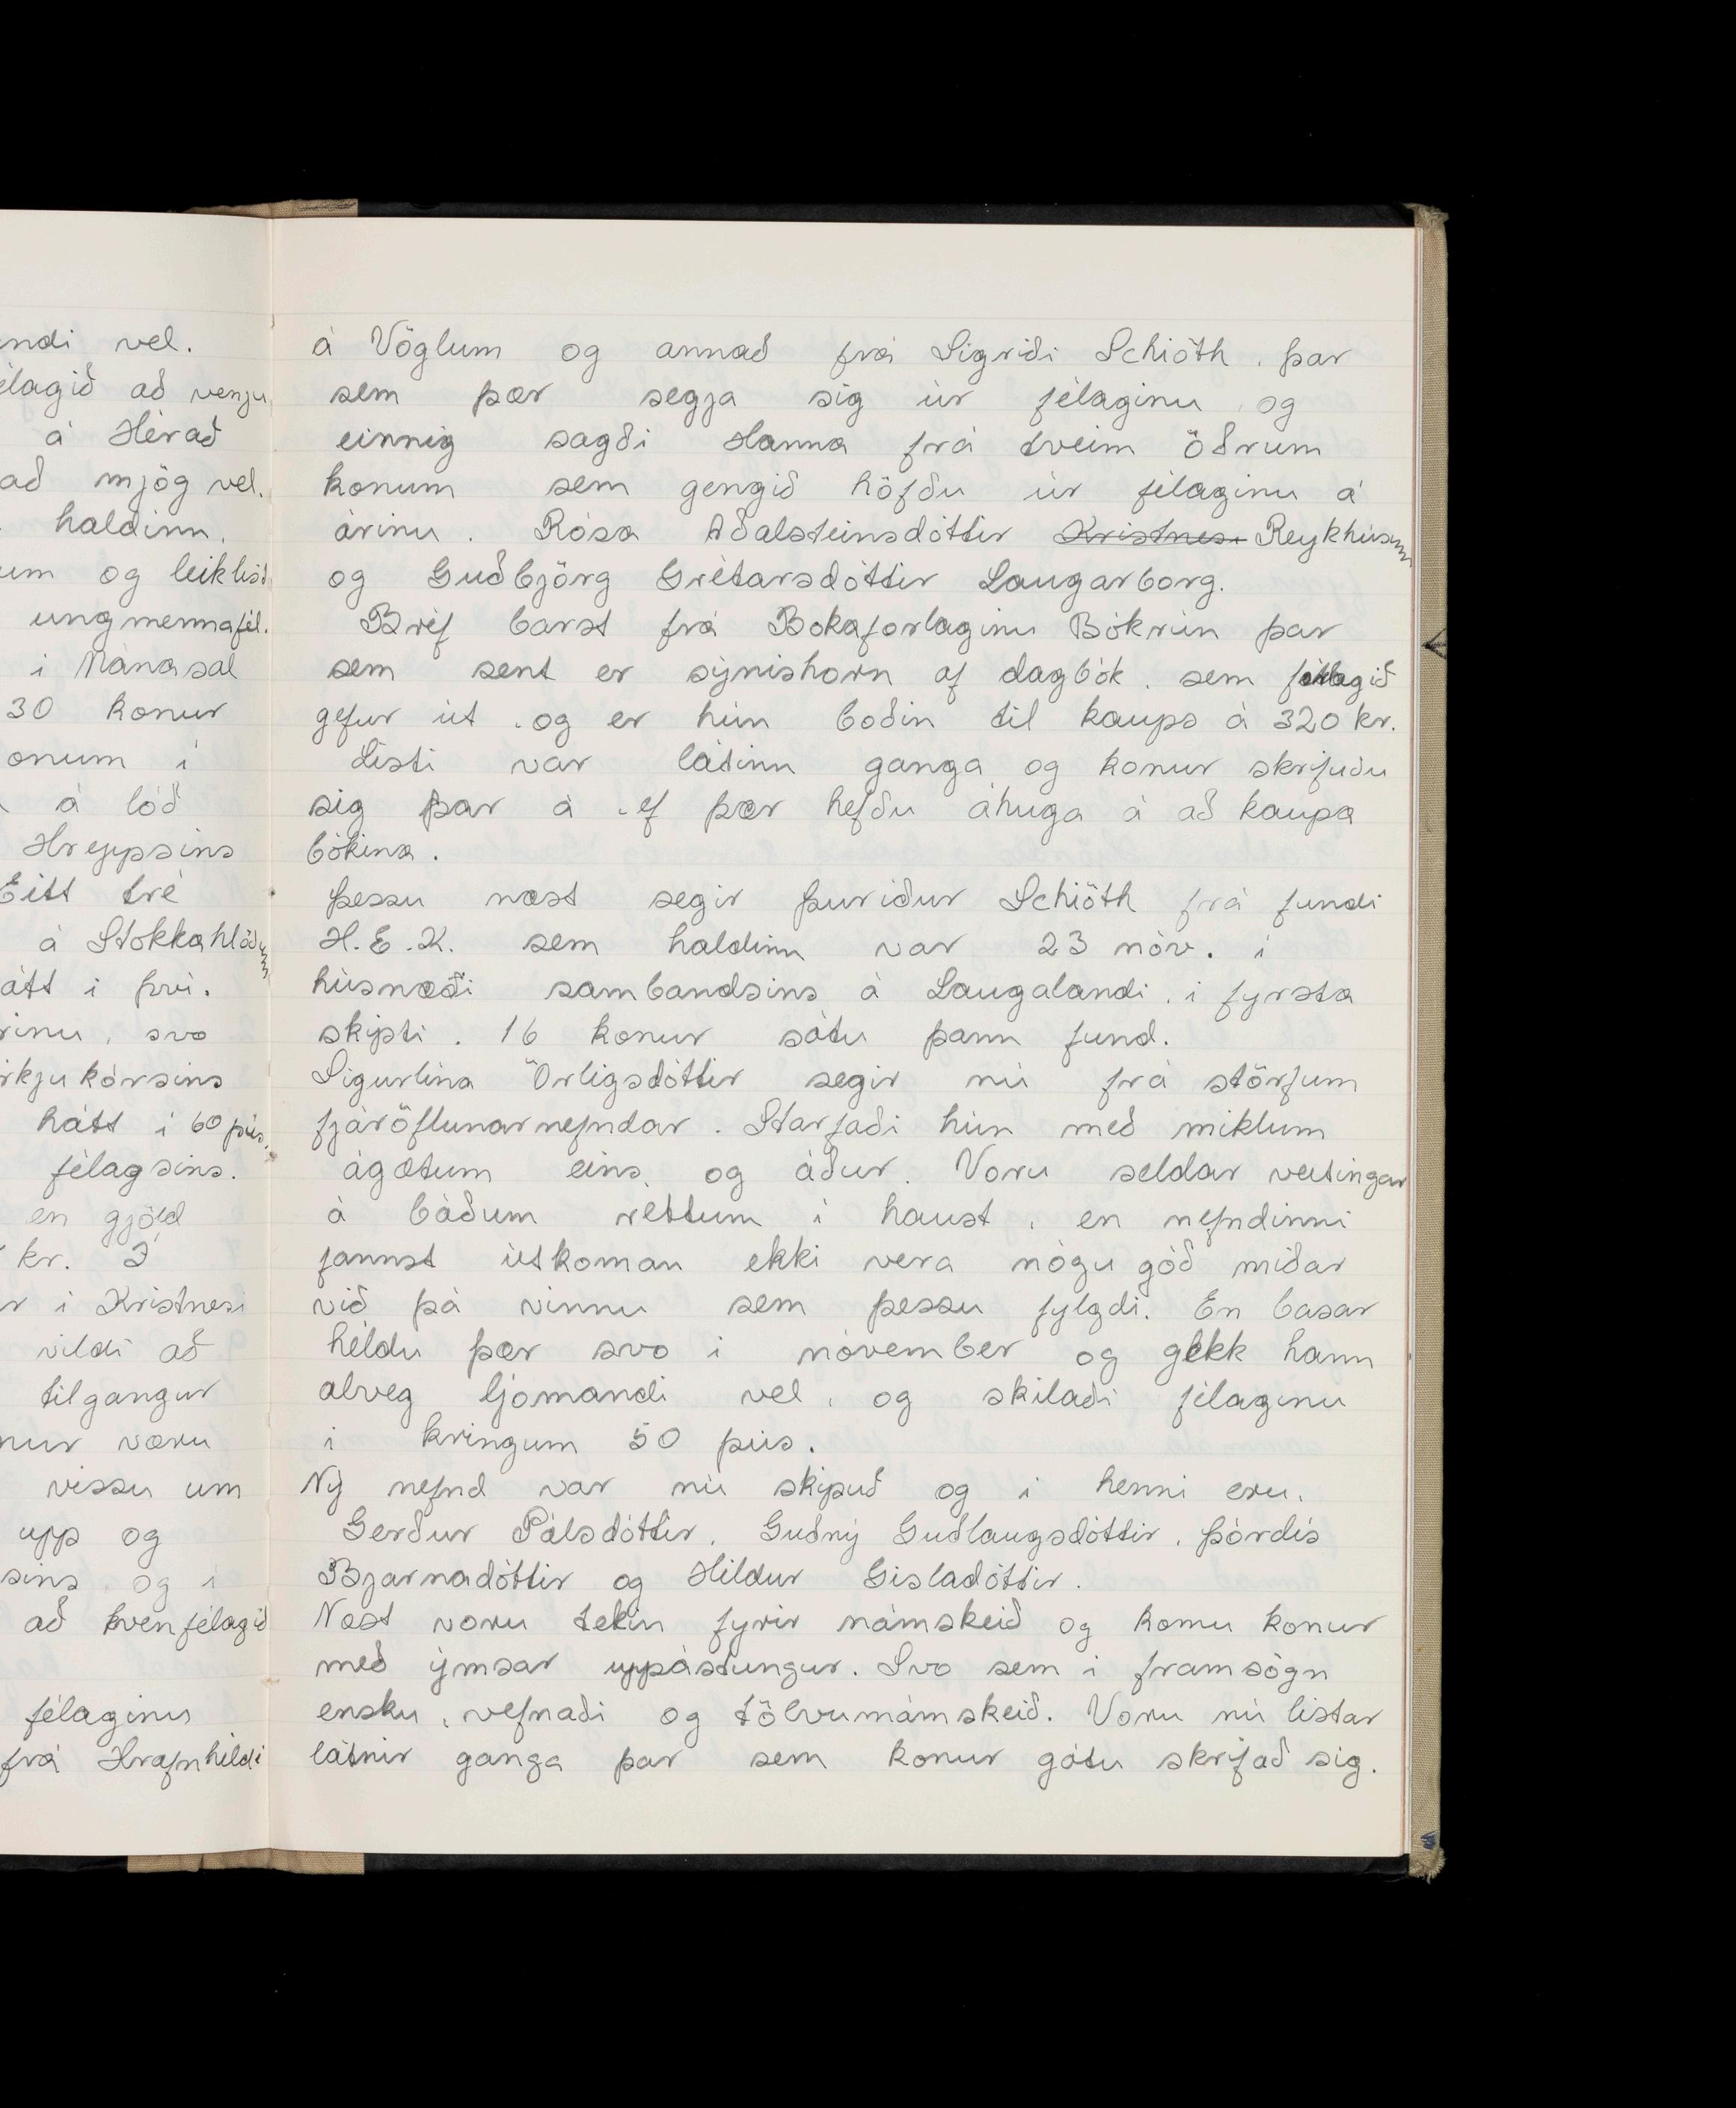 endi vel.
élagið að venju
á Hérað
að mjög vel.
haldinn.
um og leiklist
ungmennafél.
i Mánasal
30 konur
onum í
á lóð
Hreppsins
Eitt tré
á Stokkahlöðum
átt i því.
rinu, svo
rkjukórsins
hátt i 60 þús.
félagsins.
en gjöld
kr. Í
r i Kristnesi
vildi að
tilgangur
nur væru
vissu um
upp og
sins og i
að kvenfélagið
félaginu
frá Hrafnhildi
á Vöglum og annað frá Sigriði Schiöth, þar
sem þær segja sig úr félaginu og
einnig sagði Hanna frá tveim öðrum
konum sem gengið höfðu úr félaginu á
árinu. Rósa Aðalsteinsdóttir Kristnesi Reykhúsum
og Guðbjörg Grétarsdóttir Laugarborg.
Bréf barst frá Bokaforlaginu Bókrún þar
sem sent er sýnishorn af dagbók, sem forlagið
gefur út, og er hún boðin til kaups á 320 kr.
Listi var látinn ganga og konur skrifuðu
sig þar á, ef þær hefðu áhuga á að kaupa
bókina.
Þessu næst segir Þuriður Schiöth frá fundi
H.E.K. sem haldinn var 23 nóv. i
húsnæði sambandsins á Laugalandi, i fyrsta
skipti. 16 konur sátu þann fund.
Sigurlína Örligsdóttir segir nú frá störfum
fjáröflunarnefndar. Starfaði hún með miklum
ágætum eins og áður. Voru seldar veitingar
á báðum réttum í haust, en nefndinni
fannst útkoman ekki vera nógu góð miðar
við þá vinnu sem þessu fylgdi. En basar
héldu þær svo i nóvember og gekk hann
alveg ljomandi vel, og skilaði félaginu
i kringum 50 þús.
Ný nefnd var nú skipuð og i henni eru,
Gerður Pálsdóttir, Guðný Guðlaugsdóttir, Þórdís
Bjarnadóttir og Hildur Gisladóttir.
Næst voru tekin fyrir námskeið og komu konur
með ýmsar uppástungur. Svo sem i framsögn
ensku, vefnaði og tölvunámskeið. Voru nú listar
látnir ganga þar sem konur gátu skrifað sig.